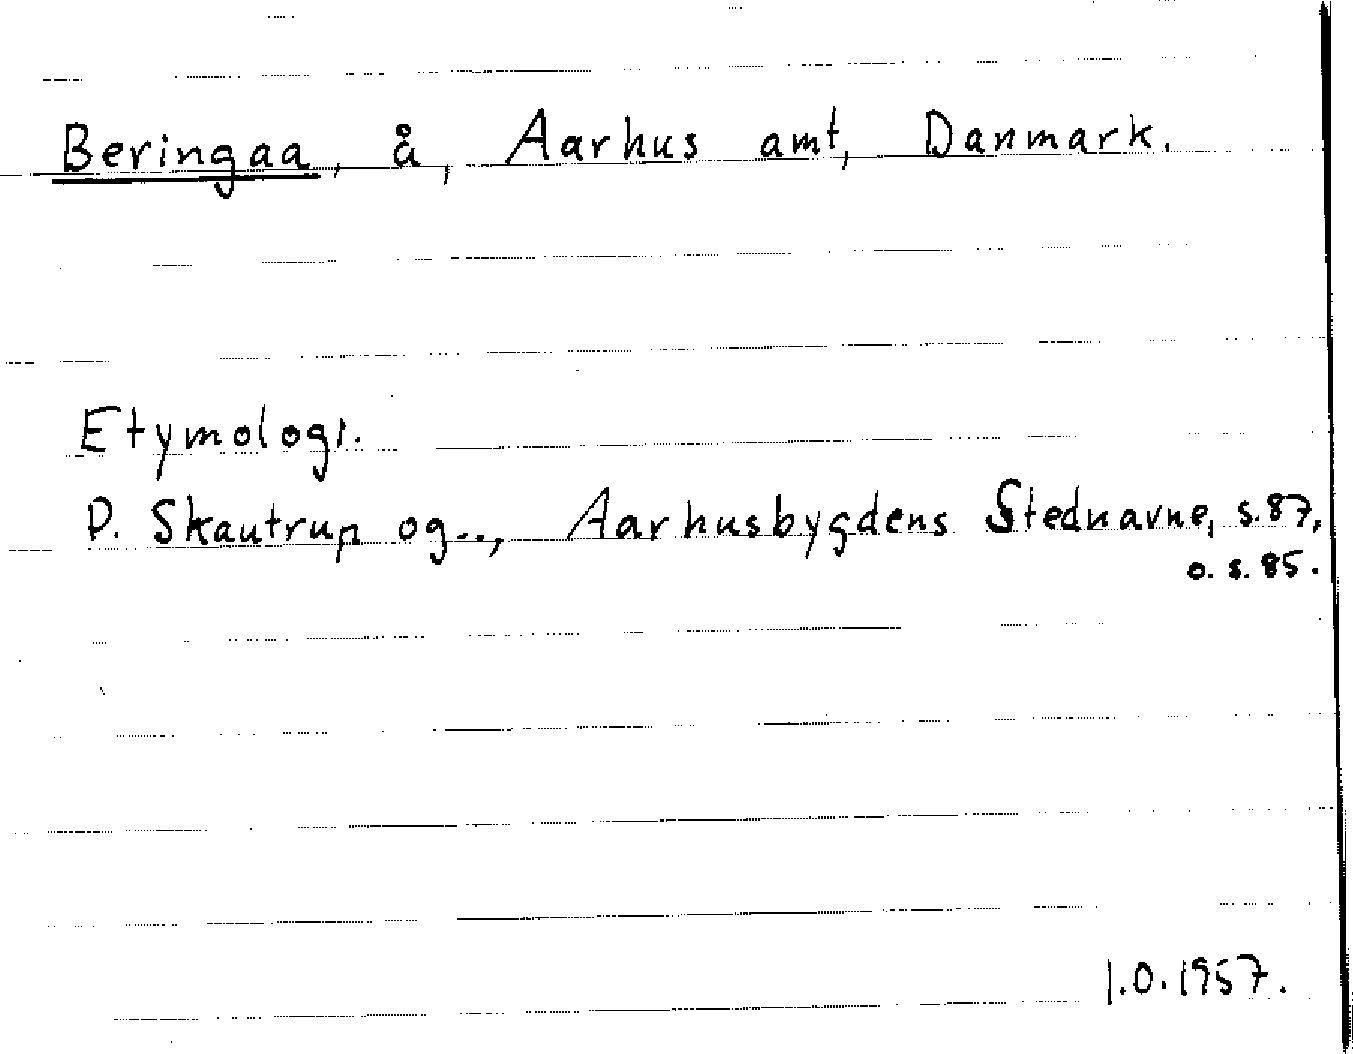 Beringaa, å, Aarhus amt, Danmark.
Etymologi.
P. Skautrup og.., Aarhusbygdens Stednavne, s.87,
o. s. 85.
I.O.1957.